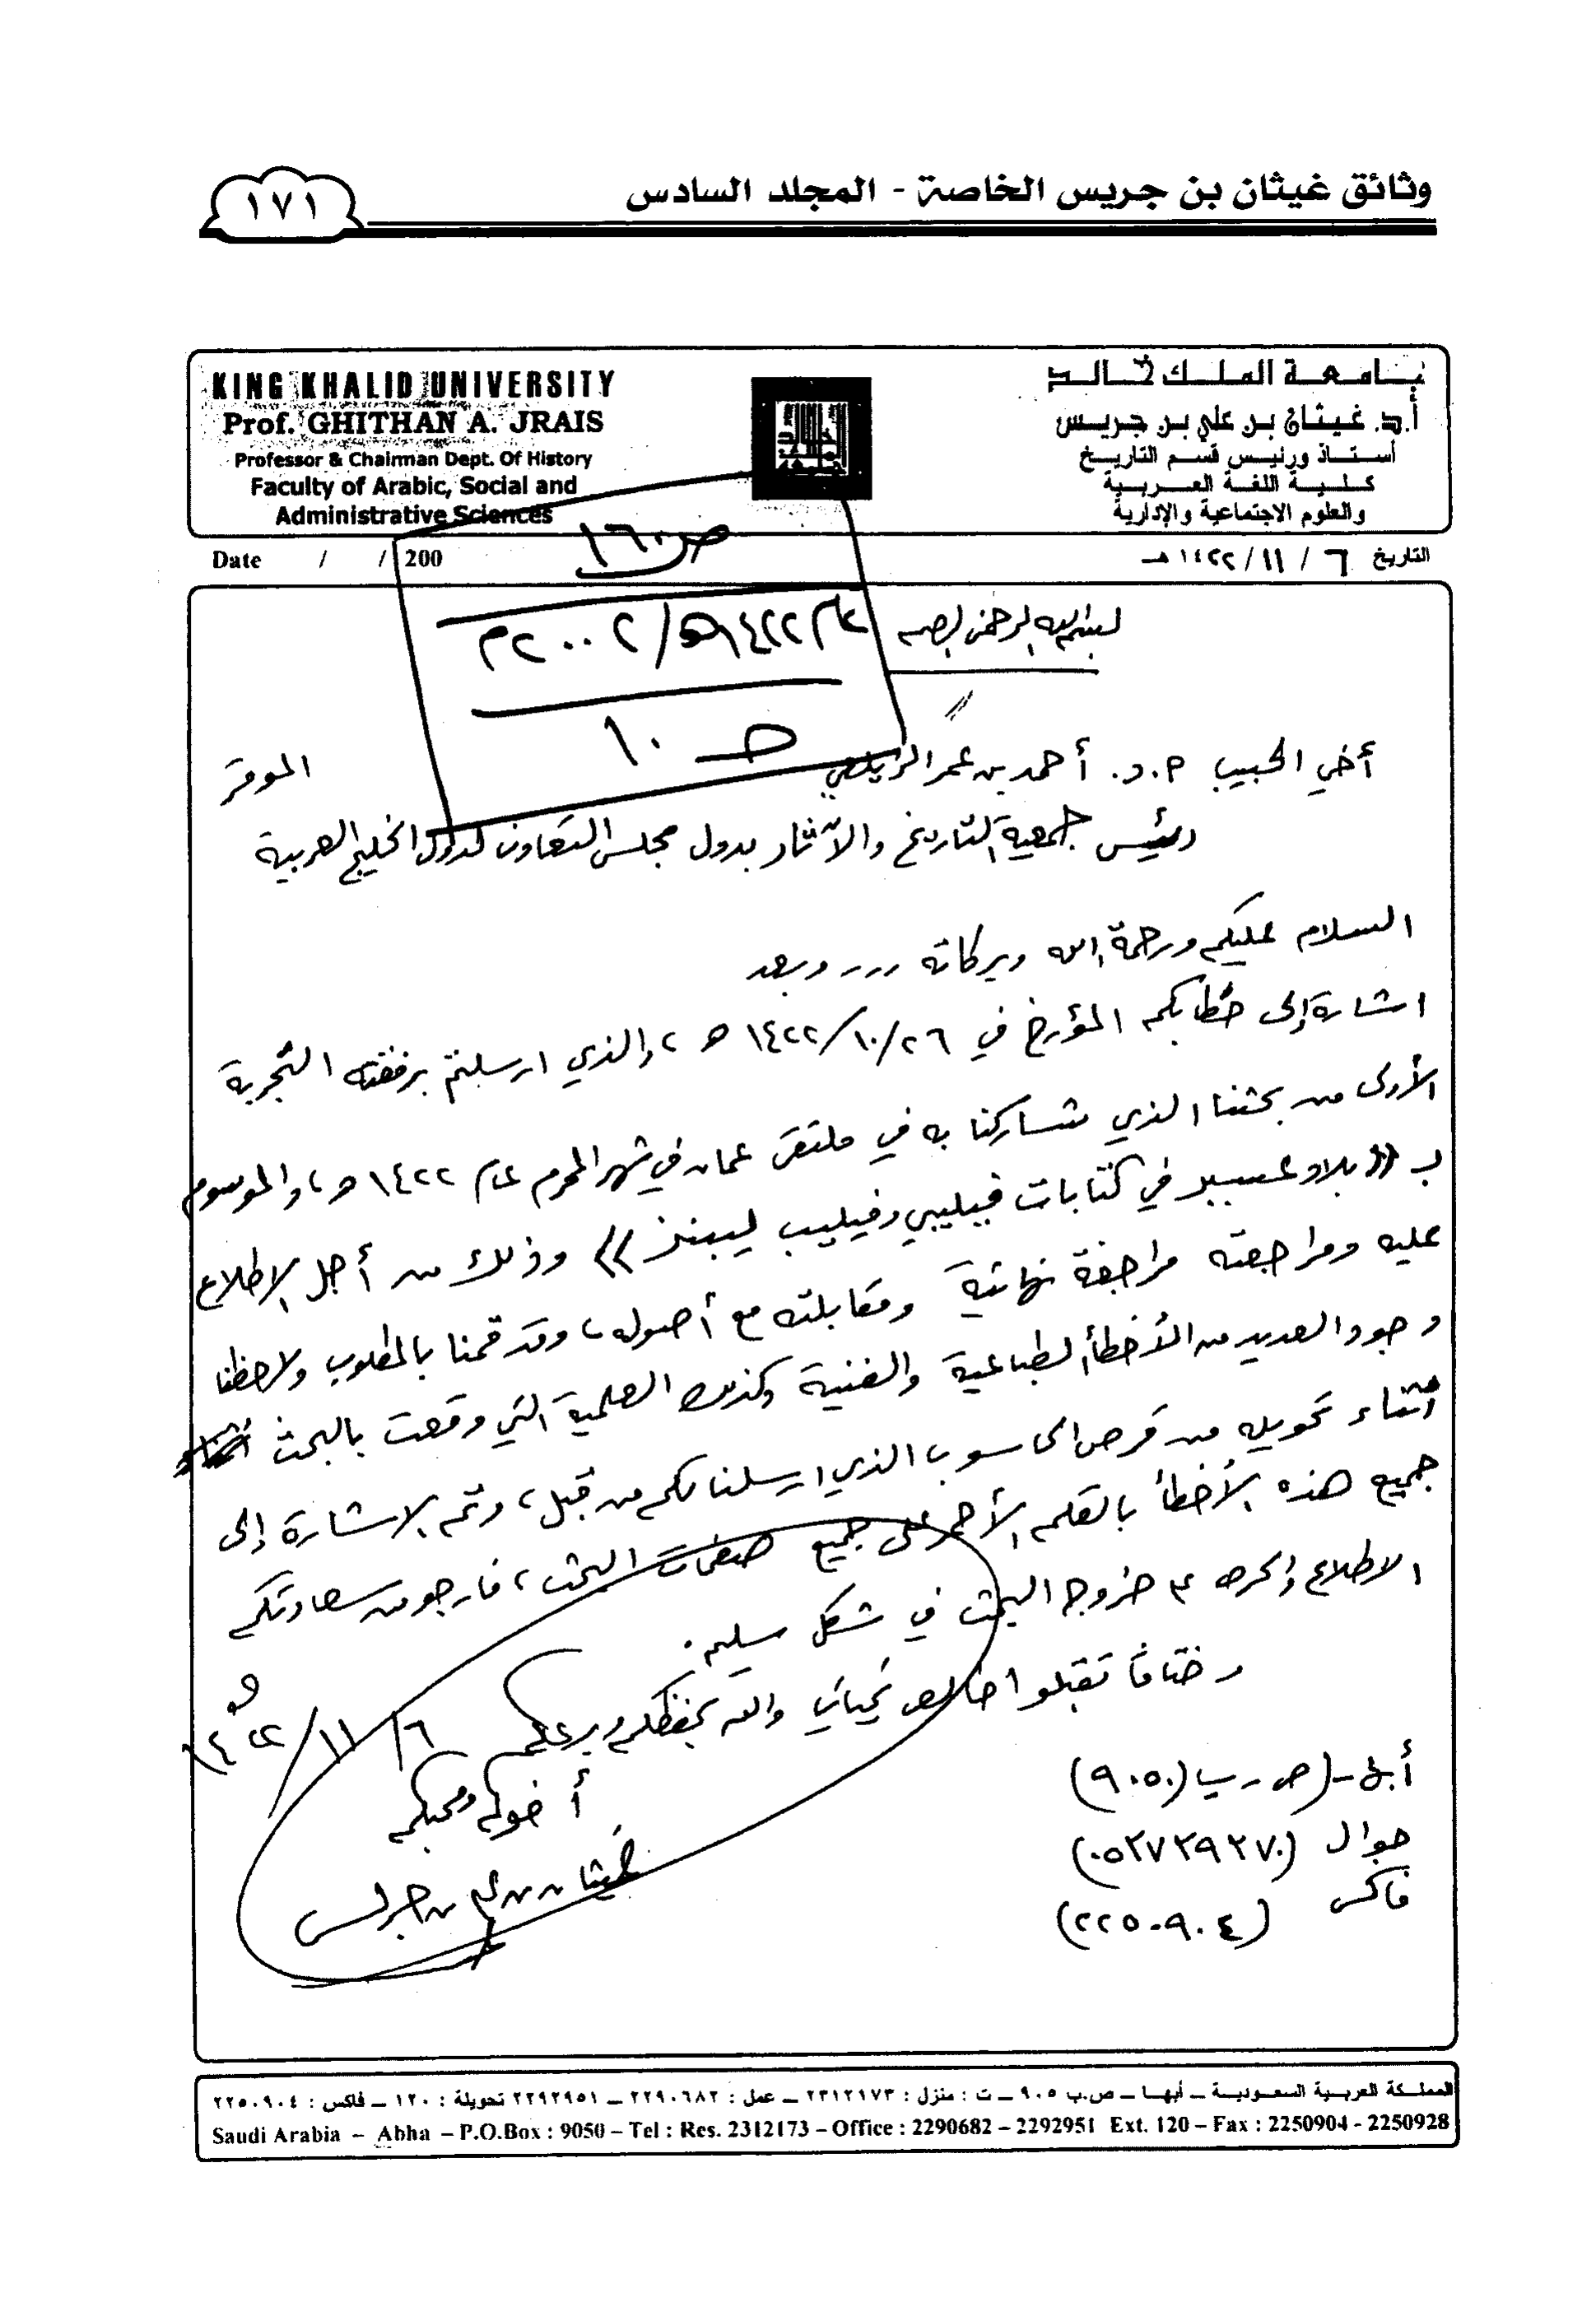 وثائق غيثان بن جريس الخاصة - المجلد السادس
١٧١
KING KHALID UNIVERSITY
Prof. GHITHAN A. JRAIS
Professor & Chairman Dept. Of History
Faculty of Arabic, Social and
Administrative Sciences
جامعة الملك خالد
أ.د. غيثان بن علي بن جريس
أستاذ ورئيس قسم التاريخ
كلية اللغة العربية
والعلوم الاجتماعية والإدارية
Date / / 200
التاريخ ٦ / ١١ / ١٤٢٢ هـ
ص ١٦٠
١٤٢٢هـ / ٢٠٠٢م
١٠
بسم الله الرحمن الرحيم
أخي الحبيب أ.د. أحمد بن عمر الزيلعي الموقر
رئيس جمعية التاريخ والآثار بدول مجلس التعاون لدول الخليج العربية
السلام عليكم ورحمة الله وبركاته ... وبعد
اشارة إلى خطابكم المؤرخ في ٢٦/١٠/١٤٢٢ هـ ، والذي ارسلتم برفقته التجربة
الأولى من بحثنا الذي شاركنا به في ملتقى عمان في شهر المحرم عام ١٤٢٢ هـ ، والموسوم
بـ (( بلاد عسير في كتابات فيلبي وفيليب ليبنز )) وذلك من أجل الإطلاع
عليه ومراجعته مراجعة نهائية ومقابلته مع أصوله ، وقد قمنا بالمطلوب ولاحظنا
وجود العديد من الأخطأ الطباعية والفنية وكذلك العلمية التي وقعت بالبحث
أثناء تحويله من قرص الحاسوب الذي ارسلناه لكم من قبل ، وتم الاشارة إلى
جميع هذه الأخطأ بالقلم الأحمر على جميع صفحات البحث ، فارجو من سعادتكم
الاطلاع والحرص على خروج البحث في شكل سليم .
وختاماً تقبلوا خالص تحياتي والله يحفظكم ويرعاكم
أخوكم ومحبكم
٦ / ١١ / ١٤٢٢هـ
غيثان بن علي بن جريس
أبها - (ص . ب (٩٠٥٠)
جوال (٠٥٢٧٣٩٣٧٠)
فاكس (٢٢٥٠٩٠٤)
المملكة العربية السعودية – أبهـا – ص.ب ٩٠٥ – ت : منزل : ٢٣١٢١٧٣ – عمل : ٢٢٩٠٦٨٢ – ٢٢٩٢٩٥١ تحويلة : ١٢٠ – فاكس : ٢٢٥٠٩٠٤
Saudi Arabia – Abha – P.O.Box : 9050 – Tel : Res. 2312173 – Office : 2290682 – 2292951 Ext. 120 – Fax : 2250904 - 2250928